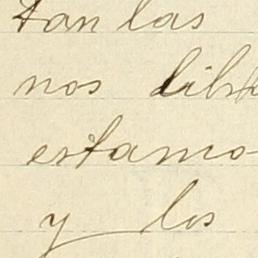 tan las
nos dibu
estamo
y los